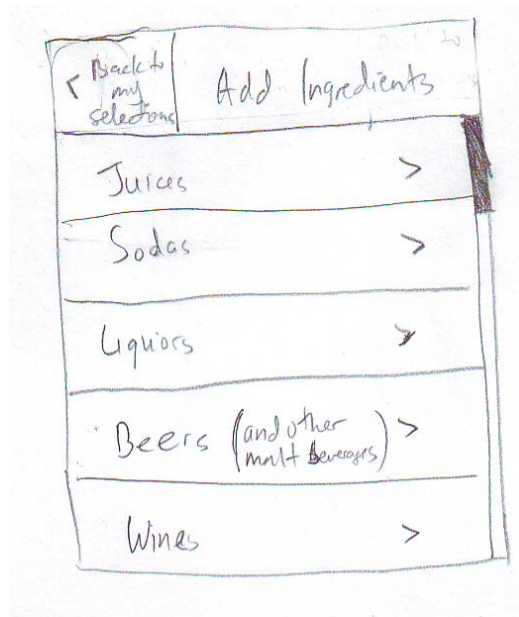 < Back to
my
selections
Add Ingredients
Juices >
Sodas >
Liquiors >
Beers (and other
malt beverages) >
Wines >